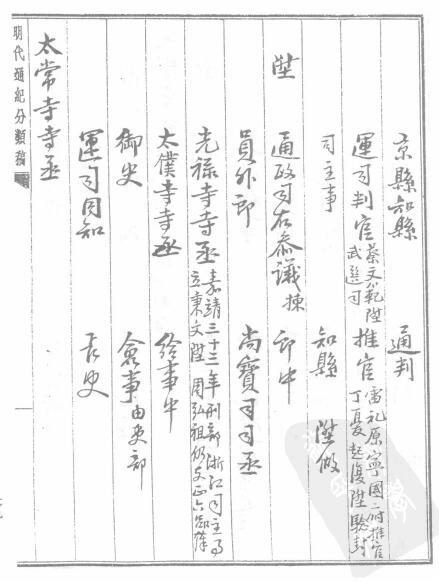 京縣知縣 通判
運司判官 蔡文範陞武選司 推官 雷礼原寧國二府推官丁憂起復陞驗封
司主事 知縣 陞做
陞 通政司右參議 揀 郎中
員外郎 尚寶司司丞
光祿寺寺丞 嘉靖三十三年刑部浙江司主事
太僕寺寺丞 給事中
御史 僉事 由吏部
運司同知 長史
太常寺寺丞
明代通紀分類稿